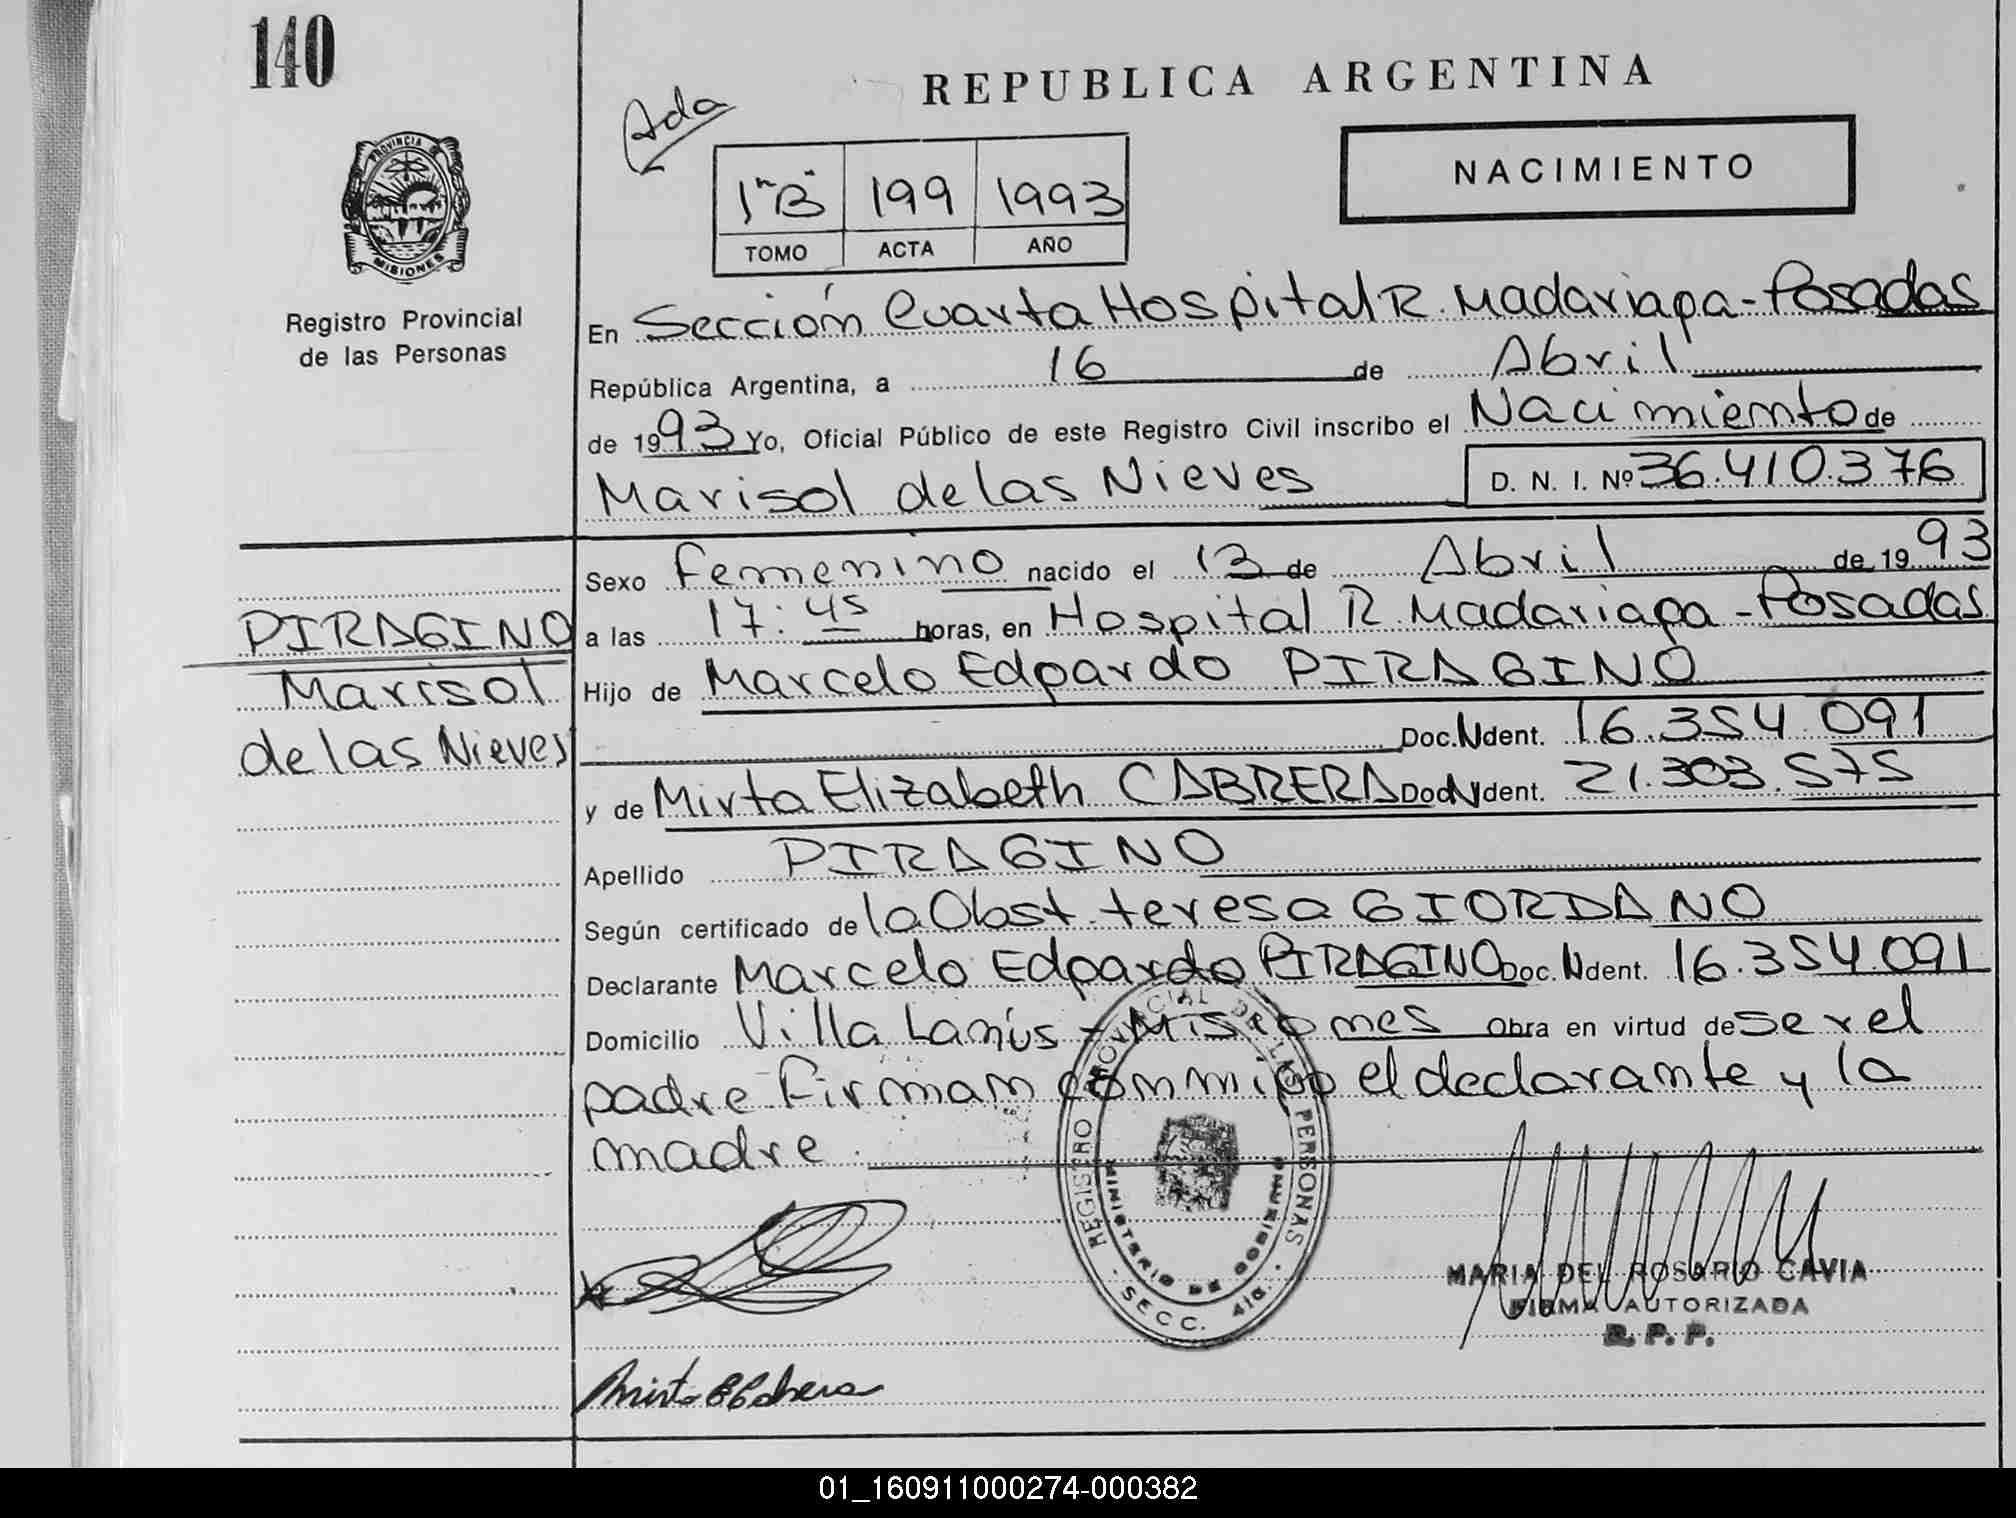 140
REPUBLICA ARGENTINA
Ada
NACIMIENTO
PROVINCIA DE
MISIONES
Registro Provincial
de las Personas
1"B" 199 1993
TOMO ACTA AÑO
En Sección Cuarta Hospital R. Madariaga - Posadas
República Argentina, a 16 de Abril
de 1993 Yo, Oficial Público de este Registro Civil inscribo el Nacimiento de
Marisol de las Nieves D. N. I. Nº 36.410.376
Sexo femenino nacido el 13 de Abril de 1993
a las 17:45 horas, en Hospital R. Madariaga - Posadas
Hijo de Marcelo Edgardo PIRAGINO
Doc. N dent. 16.354.091
y de Mirta Elizabeth CABRERA Doc N dent. 21.303.575
Apellido PIRAGINO
Según certificado de la Obst. teresa GIORDANO
Declarante Marcelo Edgardo PIRAGINO Doc. N dent. 16.354.091
Domicilio Villa Lanús - Misiones Obra en virtud de ser el
padre Firman conmigo el declarante y la
madre.
PIRAGINO
Marisol
de las Nieves
REGISTRO PROVINCIAL DE LAS PERSONAS
MINISTERIO DE GOBIERNO
SECC. 4ta.
MARIA DEL ROSARIO CAVIA
FIRMA AUTORIZADA
R. P. P.
Mirta E Cabrera
01_160911000274-000382